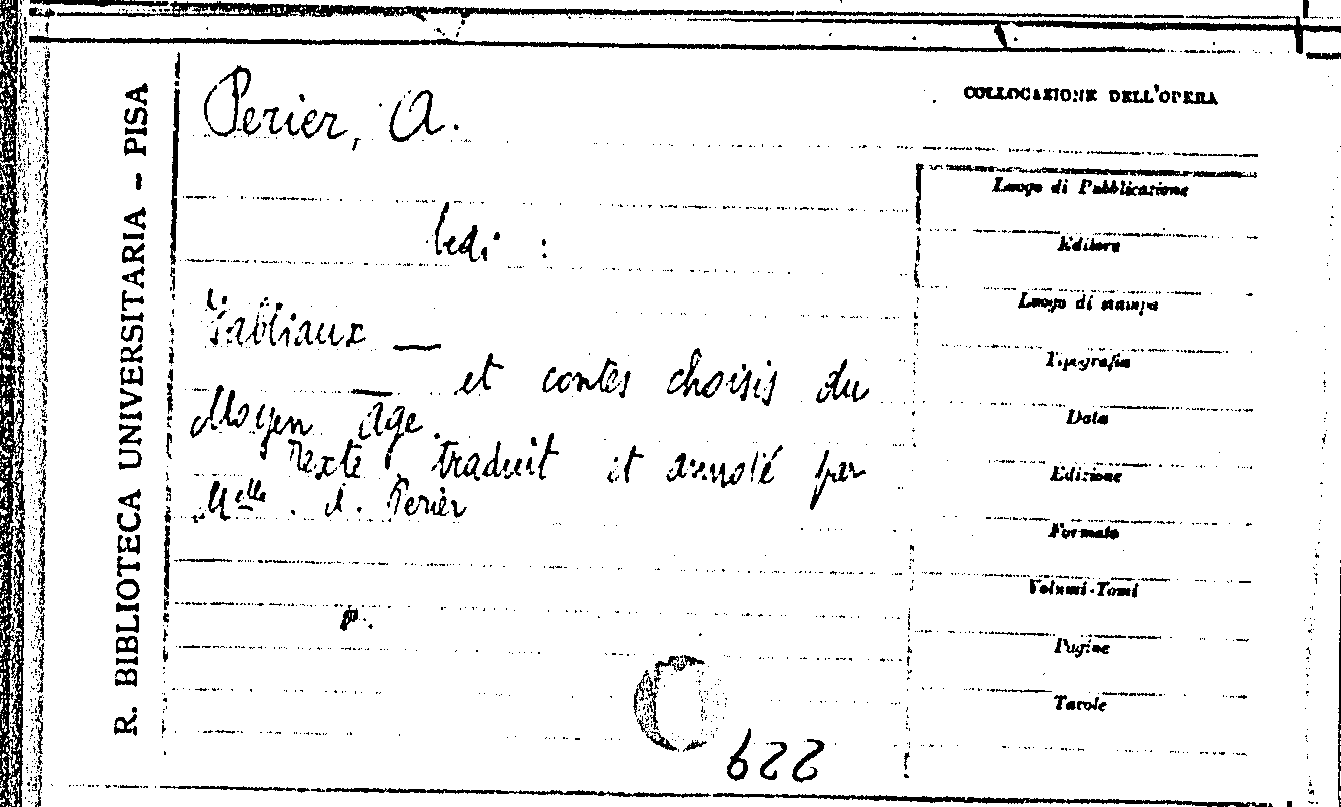 R. BIBLIOTECA UNIVERSITARIA - PISA
Perier, A.
Vedi :
Fabliaux —
— et contes choisis du
Moyen Age.
Texte traduit et annoté par
Melle. A. Perier
p.
229
COLLOCAZIONE DELL'OPERA
Luogo di Pubblicazione
Editore
Luogo di stampa
Tipografia
Data
Edizione
Formato
Volumi-Tomi
Pagine
Tavole